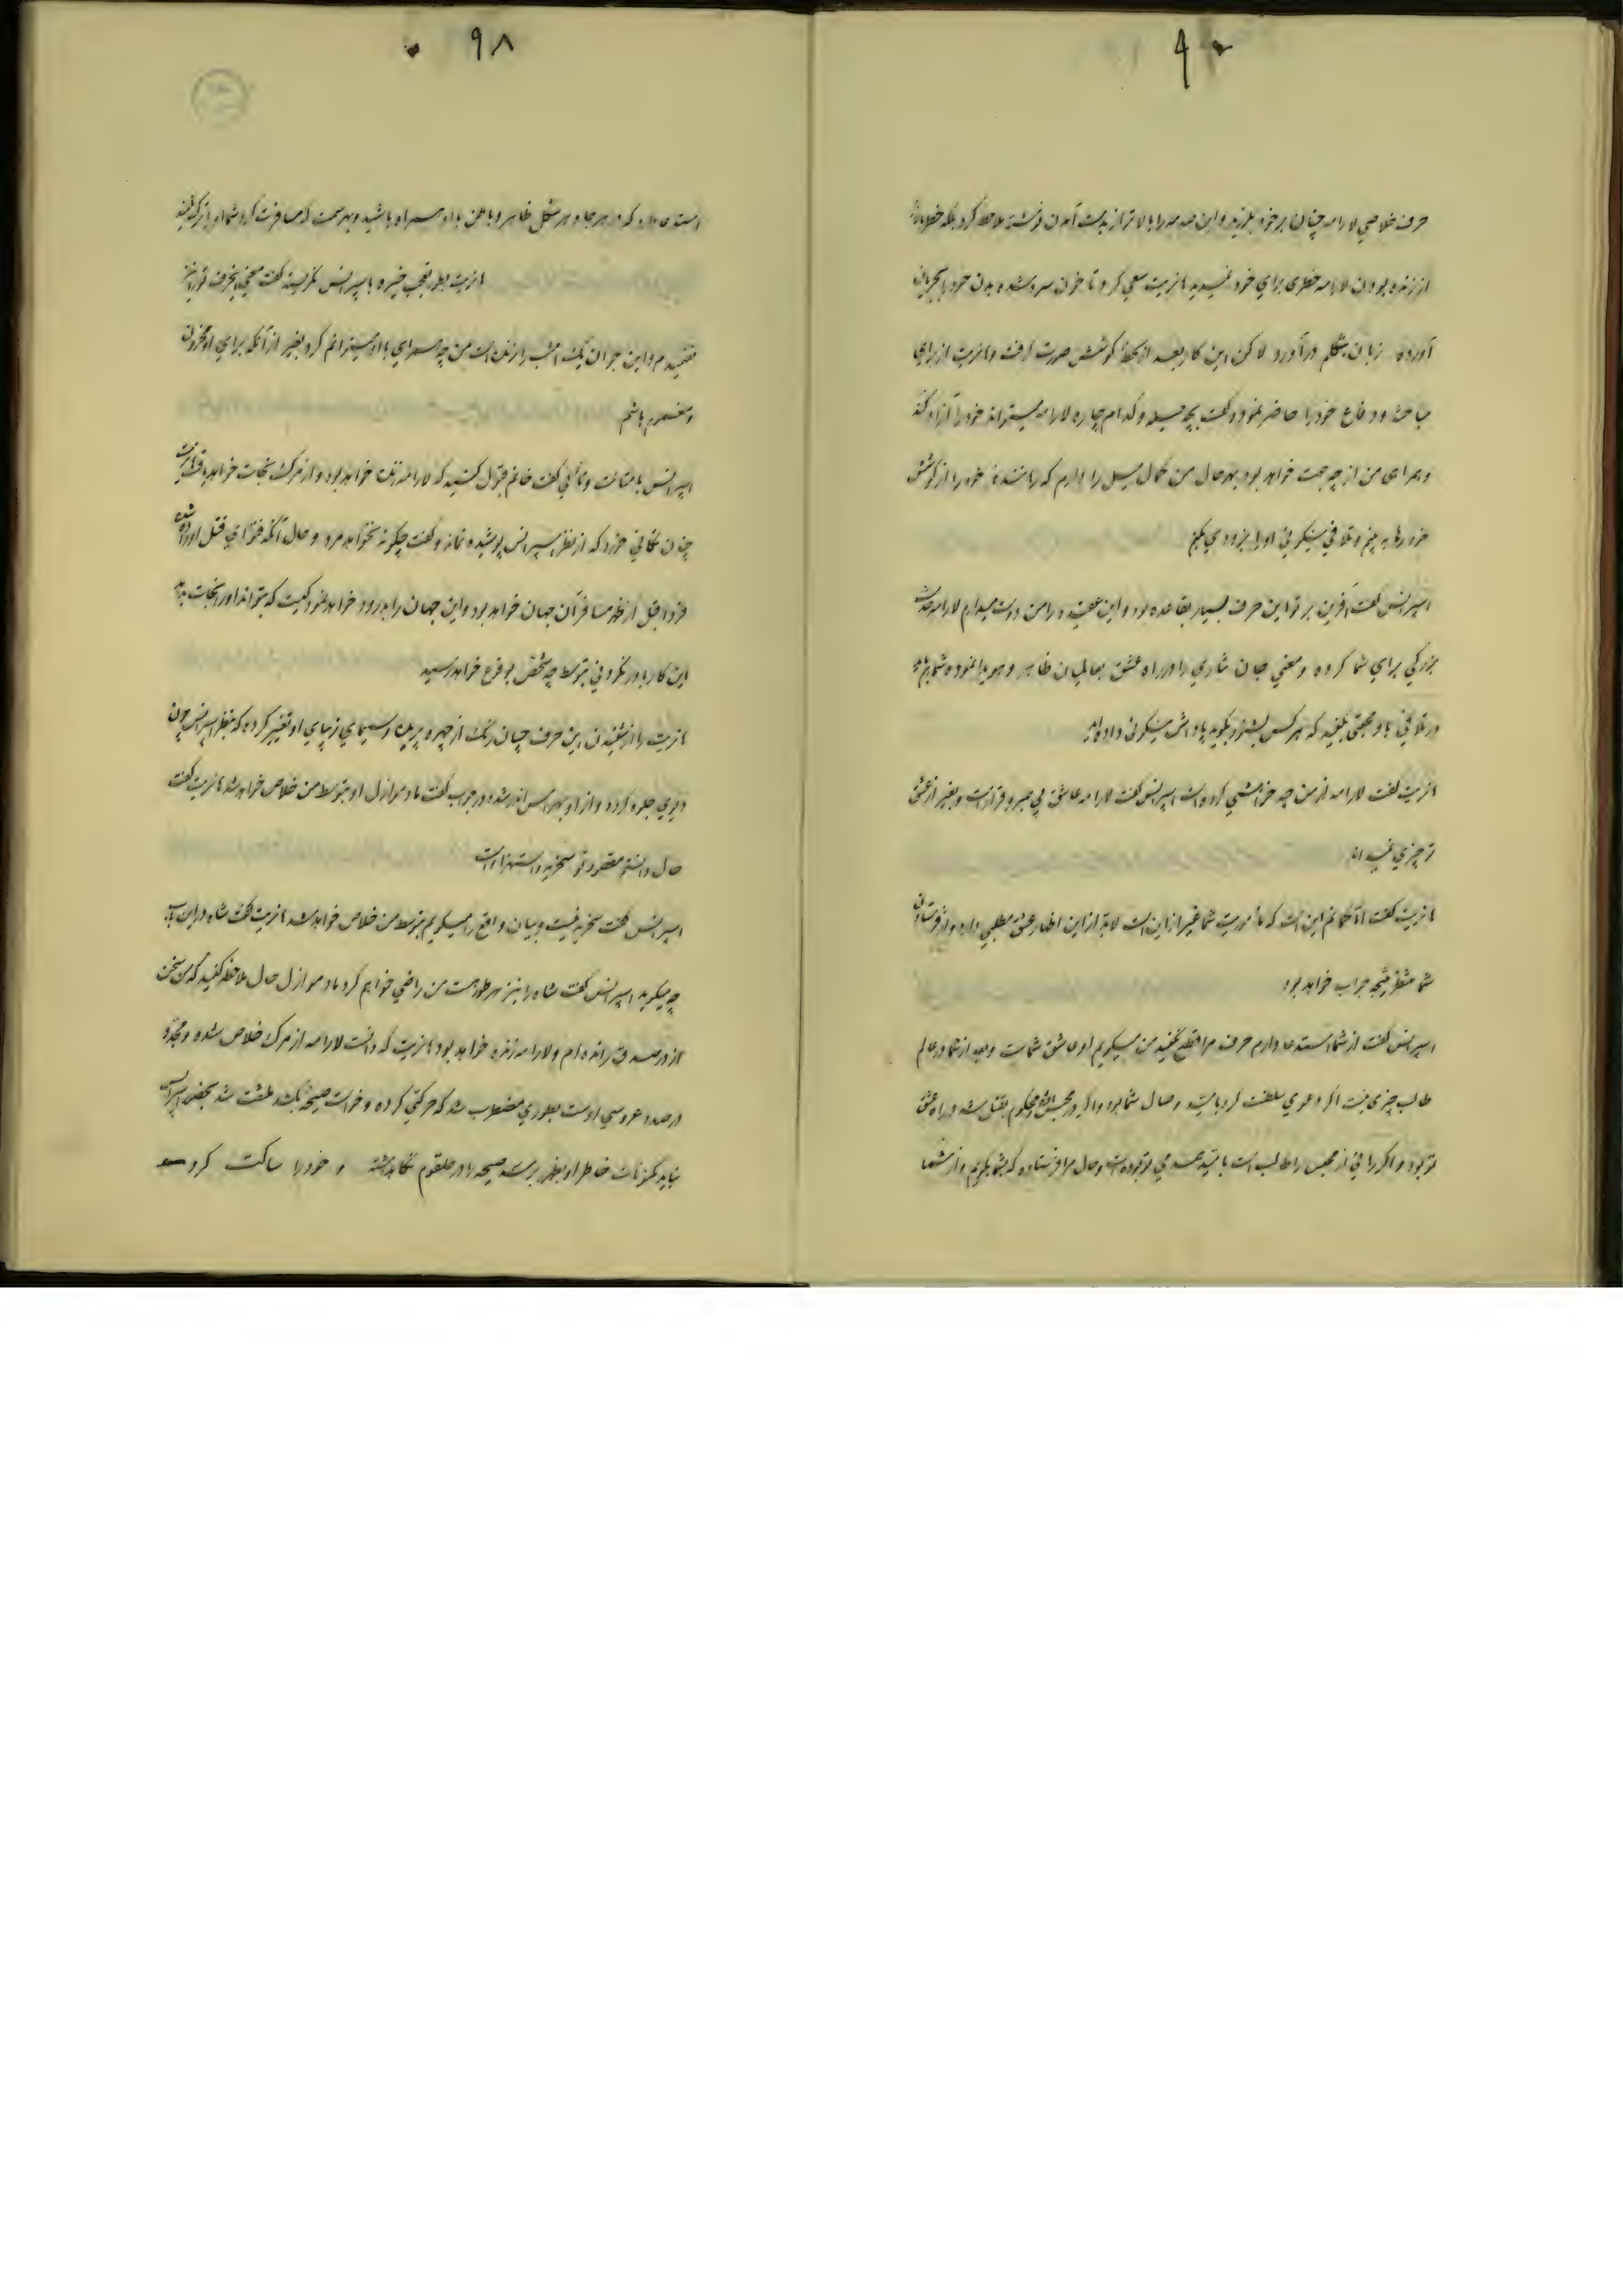 حرف خلاصی لارامه چنان بر خود بلرزید و این صدمه را بالاتر از بدست آمدن نوشته ملاحظه کرد بلکه
از زنده بودن لارامه خطری برای خود نمیدید مازیت سعی کرد تا خون سرد شده بدن خود را بجریان
آورده زبان بتکلم درآورد لاکن این کار بعد از لحظهٔ کوشش صورت گرفت و مازیت از برای
مباحثه و دفاع خود را حاضر نمود و گفت بچه حیله و کدام چاره لارامه میتواند خود را آزاد کند
و همراهی من از چه جهت خواهد بود بهر حال من کمال میل را دارم که رهاننده خود را از کوشش
خود رها به بینم و تلافی نیکوئی او را بزودی بکنم
اسپرانس گفت آفرین بر تو این حرف بسیار بقاعده بود و این عقیده را من دوست میدارم لارامه خدمت
بزرگی برای شما کرده و معنی جان نثاری را در راه عشق بعالمیان ظاهر و هویدا نموده شما هم باید
در تلافی با او محبتی بکنید که هر کس بشنود بگوید پاداش نیکوئی داده‌اید
مازیت گفت لارامه از من چه خواهشی کرده است اسپرانس گفت لارامه عاشق بی صبر و قرار است و بغیر از عشق
تو چیزی نمیداند
مازیت گفت اما گمانم این است که مأموریت شما غیر از این است لابد از این اظهار عشق مطلبی دارد و از فرستادن
شما منتظر نتیجه جواب خواهد بود
اسپرانس گفت از شما استدعا دارم حرف مرا قطع نکنید من میگویم او عاشق شماست و بعد از شما در عالم
طالب چیزی نیست اگر دعوی سلطنت کرد بامید وصال شما بود و اگر در محبس افتاد و محکوم بقتل شد در راه عشق
تو بود و اگر رهائی از محبس را طالب است بامید همدمی تو بوده است و حال مرا فرستاده که بشما بگویم و از شما
۹۸
استدعا دارد که در هر جا و هر شکل ظاهر و باطن با او همراه باشید و بهر سمت که مسافرت کرد شما هم
مازیت بطور تعجب خیره باسپرانس نگریسته گفت
نفهمیدم و این جوان یک امشب را زنده است من چه همراهی با او میتوانم کرد بغیر از آنکه برای او محزون
و مغموم باشم
اسپرانس با متانت و تأنی گفت خانم قبول کنید که لارامه زنده خواهد بود و از مرگ نجات خواهد یافت مازیت
چنان تکانی خورد که از نظر اسپرانس پوشیده نماند و گفت چگونه نخواهد مرد و حال آنکه فتوای قتل او داده شده
فردا قبل از ظهر مسافر آن جهان خواهد بود و این جهان را بدرود خواهد نمود کیست که بتواند او را نجات بدهد
این کار باور نکردنی بتوسط چه شخص بوقوع خواهد رسید
مازیت را از شنیدن این حرف چنان رنگ از چهره پریده و سیمای زیبای او تغییر کرده که بنظر اسپرانس چون
دیوی جلوه کرد و از او بهراس اندر شده در جواب گفت مادموازل او بتوسط من خلاص خواهد شد مازیت گفت
حال دانستم مقصود تو سخریه و استهزا است
اسپرانس گفت سخریه نیست و بیان واقع را میگویم بتوسط من خلاص خواهد شد مازیت گفت شاه در این باب
چه میگوید اسپرانس گفت شاه را نیز هر طور هست من راضی خواهم کرد مادموازل حال ملاحظه کنید که من سخن
از در صدق رانده‌ام و لارامه زنده خواهد بود مازیت که دانست لارامه از مرگ خلاص شده و مجدداً
در صدد عروسی اوست بطوری مضطرب شد که حرکتی کرده و خواست صیحهٔ بکشد ملتفت شد بحضور اسپرانس
نباید مکنونات خاطر او بظهور برسد صیحه را در حلقوم نگاهداشته و خود را ساکت کرد